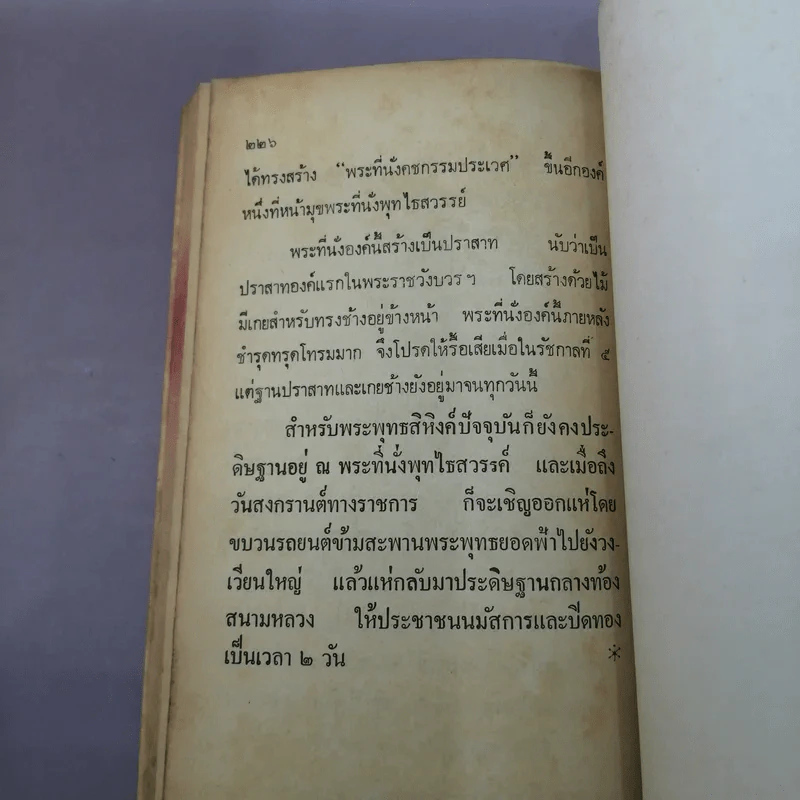 ๒๒๖
ได้ทรงสร้าง “พระที่นั่งคชกรรมประเวศ” ขึ้นอีกองค์
หนึ่งที่หน้ามุขพระที่นั่งพุทไธสวรรย์
พระที่นั่งองค์นี้สร้างเป็นปราสาท นับว่าเป็น
ปราสาทองค์แรกในพระราชวังบวร ฯ โดยสร้างด้วยไม้
มีเกยสำหรับทรงช้างอยู่ข้างหน้า พระที่นั่งองค์นี้ภายหลัง
ชำรุดทรุดโทรมมาก จึงโปรดให้รื้อเสียเมื่อในรัชกาลที่ ๕
แต่ฐานปราสาทและเกยช้างยังอยู่มาจนทุกวันนี้
สำหรับพระพุทธสิหิงค์ปัจจุบันก็ยังคงประ-
ดิษฐานอยู่ ณ พระที่นั่งพุทไธสวรรค์ และเมื่อถึง
วันสงกรานต์ทางราชการ ก็จะเชิญออกแห่โดย
ขบวนรถยนต์ข้ามสะพานพระพุทธยอดฟ้าไปยังวง-
เวียนใหญ่ แล้วแห่กลับมาประดิษฐานกลางท้อง
สนามหลวง ให้ประชาชนนมัสการและปิดทอง
เป็นเวลา ๒ วัน *